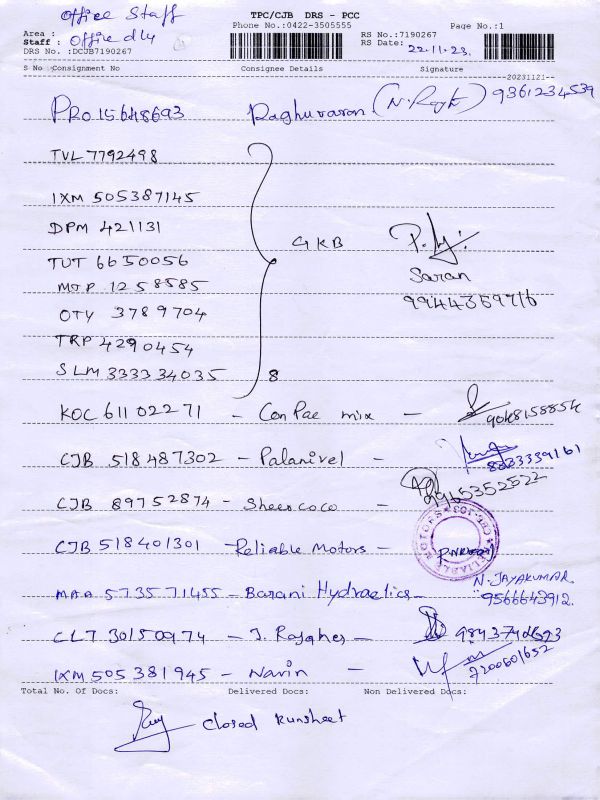 Office Staff
TPC/CJB DRS - PCC
Phone No.:0422-3505555
Page No.:1
Area :
Staff : Office dly
RS No.:7190267
RS Date: 22.11.23.
DRS No. :DCJB7190267
S No Consignment No Consignee Details Signature
--20231121--
PRO 15648693 Raghuvaran (N. Ragh) 9361234539
TVL 7792498
IXM 505387145
DPM 421131
GKB
TUT 6650056
Saran
MTP 1258585
9944359716
OTY 3789704
TRP 4290454
SLM 333334035 8
KOC 611022 71 - Con Pae mix - 9048158854
CJB 518487302 - Palanivel - 8233339161
CJB 89752874 - Sheercoco - 9965352522
CJB 518401301 - Reliable Motors -
RELIABLE MOTORS
MAA 573571455 - Barani Hydraulics - N. JAYAKUMAR.
9566643912.
CLT 30150974 - J. Rajghes -
IXM 505381945 - Navin - 7200601652
Total No. Of Docs: Delivered Docs: Non Delivered Docs:
closed Runsheet